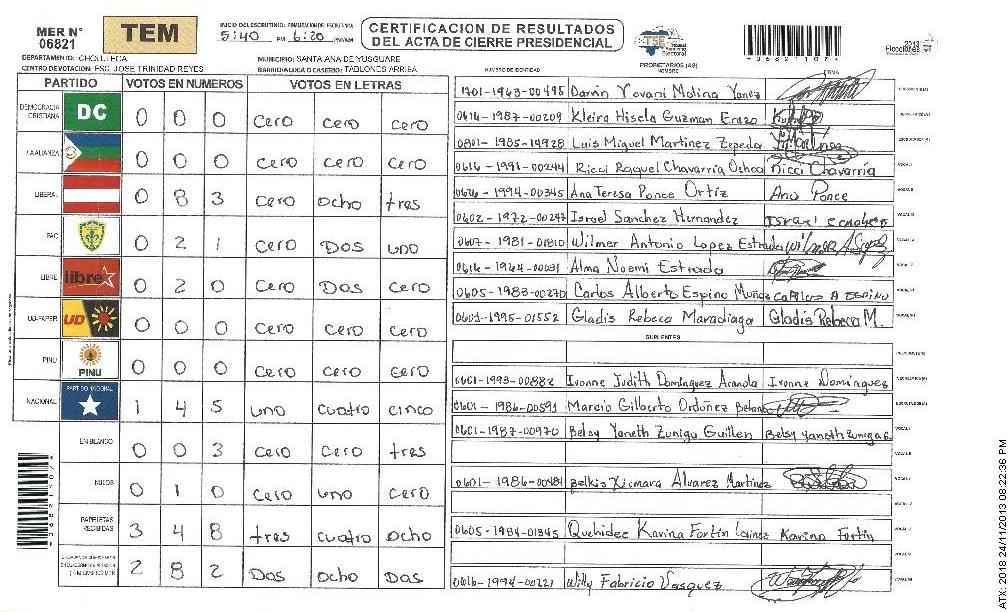 MER N° 06821
TEM
INICIO DEL ESCRUTINIO: FINALIZACION DEL ESCRUTINIO:
5:40 PM 6:20 PM/AM
CERTIFICACION DE RESULTADOS
DEL ACTA DE CIERRE PRESIDENCIAL
TSE
Tribunal Supremo Electoral
2013
Elecciones
*06821107*
DEPARTAMENTO: CHOLUTECA
MUNICIPIO: SANTA ANA DE YUSGUARE
CENTRO DE VOTACION: ESC. JOSE TRINIDAD REYES
BARRIO/ALDEA O CASERIO: TABLONES ARRIBA
PARTIDO VOTOS EN NUMEROS VOTOS EN LETRAS
DEMOCRACIA CRISTIANA DC 0 0 0 Cero Cero Cero
LA ALIANZA 0 0 0 Cero Cero Cero
LIBERAL 0 8 3 Cero ocho tres
PAC 0 2 1 Cero Dos uno
LIBRE libre 0 2 0 Cero Dos Cero
UD-FAPER UD 0 0 0 Cero Cero Cero
PINU PINU 0 0 0 Cero Cero Cero
NACIONAL PARTIDO NACIONAL 1 4 5 uno cuatro cinco
EN BLANCO 0 0 3 Cero Cero tres
NULOS 0 1 0 Cero uno Cero
PAPELETAS RECIBIDAS 3 4 8 tres cuatro ocho
2 8 2 Dos ocho Dos
NUMERO DE IDENTIDAD PROPIETARIOS (AS) NOMBRE FIRMA
1701-1963-00495 Darvin Yovani Molina Yanez
0614-1987-00209 Kleira Hisela Guzman Erazo
0801-1985-14928 Luis Miguel Martinez Zepeda
0616-1991-00244 Ricci Raquel Chavarria Ochoa Ricci Chavarría
0616-1994-00345 Ana Teresa Ponce Ortíz Ana Ponce
0602-1972-00247 Israel Sanchez Hernandez
0607-1981-01810 Wilmer Antonio Lopez Estrada
0616-1964-00031 Alma Noemi Estrada
0605-1983-00270 Carlos Alberto Espino Muñoz Carlos A ESPINO
0601-1995-01552 Gladis Rebeca Maradiaga Gladis Rebeca M.
SUPLENTES
0601-1993-00882 Ivonne Judith Dominguez Aranda Ivonne Dominguez
0601-1986-00591 Marcio Gilberto Ordoñez
0601-1987-00970 Belsy Yaneth Zuniga Guillen Belsy Yaneth Zuniga G.
0601-1986-00481 Belkis Xiomara Alvarez Martinez
0605-1984-01345 Quehidee Karina Fortin Lainez Karina Fortin
0616-1994-00221 Willy Fabricio Vasquez
*06821107*
ATX 2018 24/11/2013 08:22:36 PM